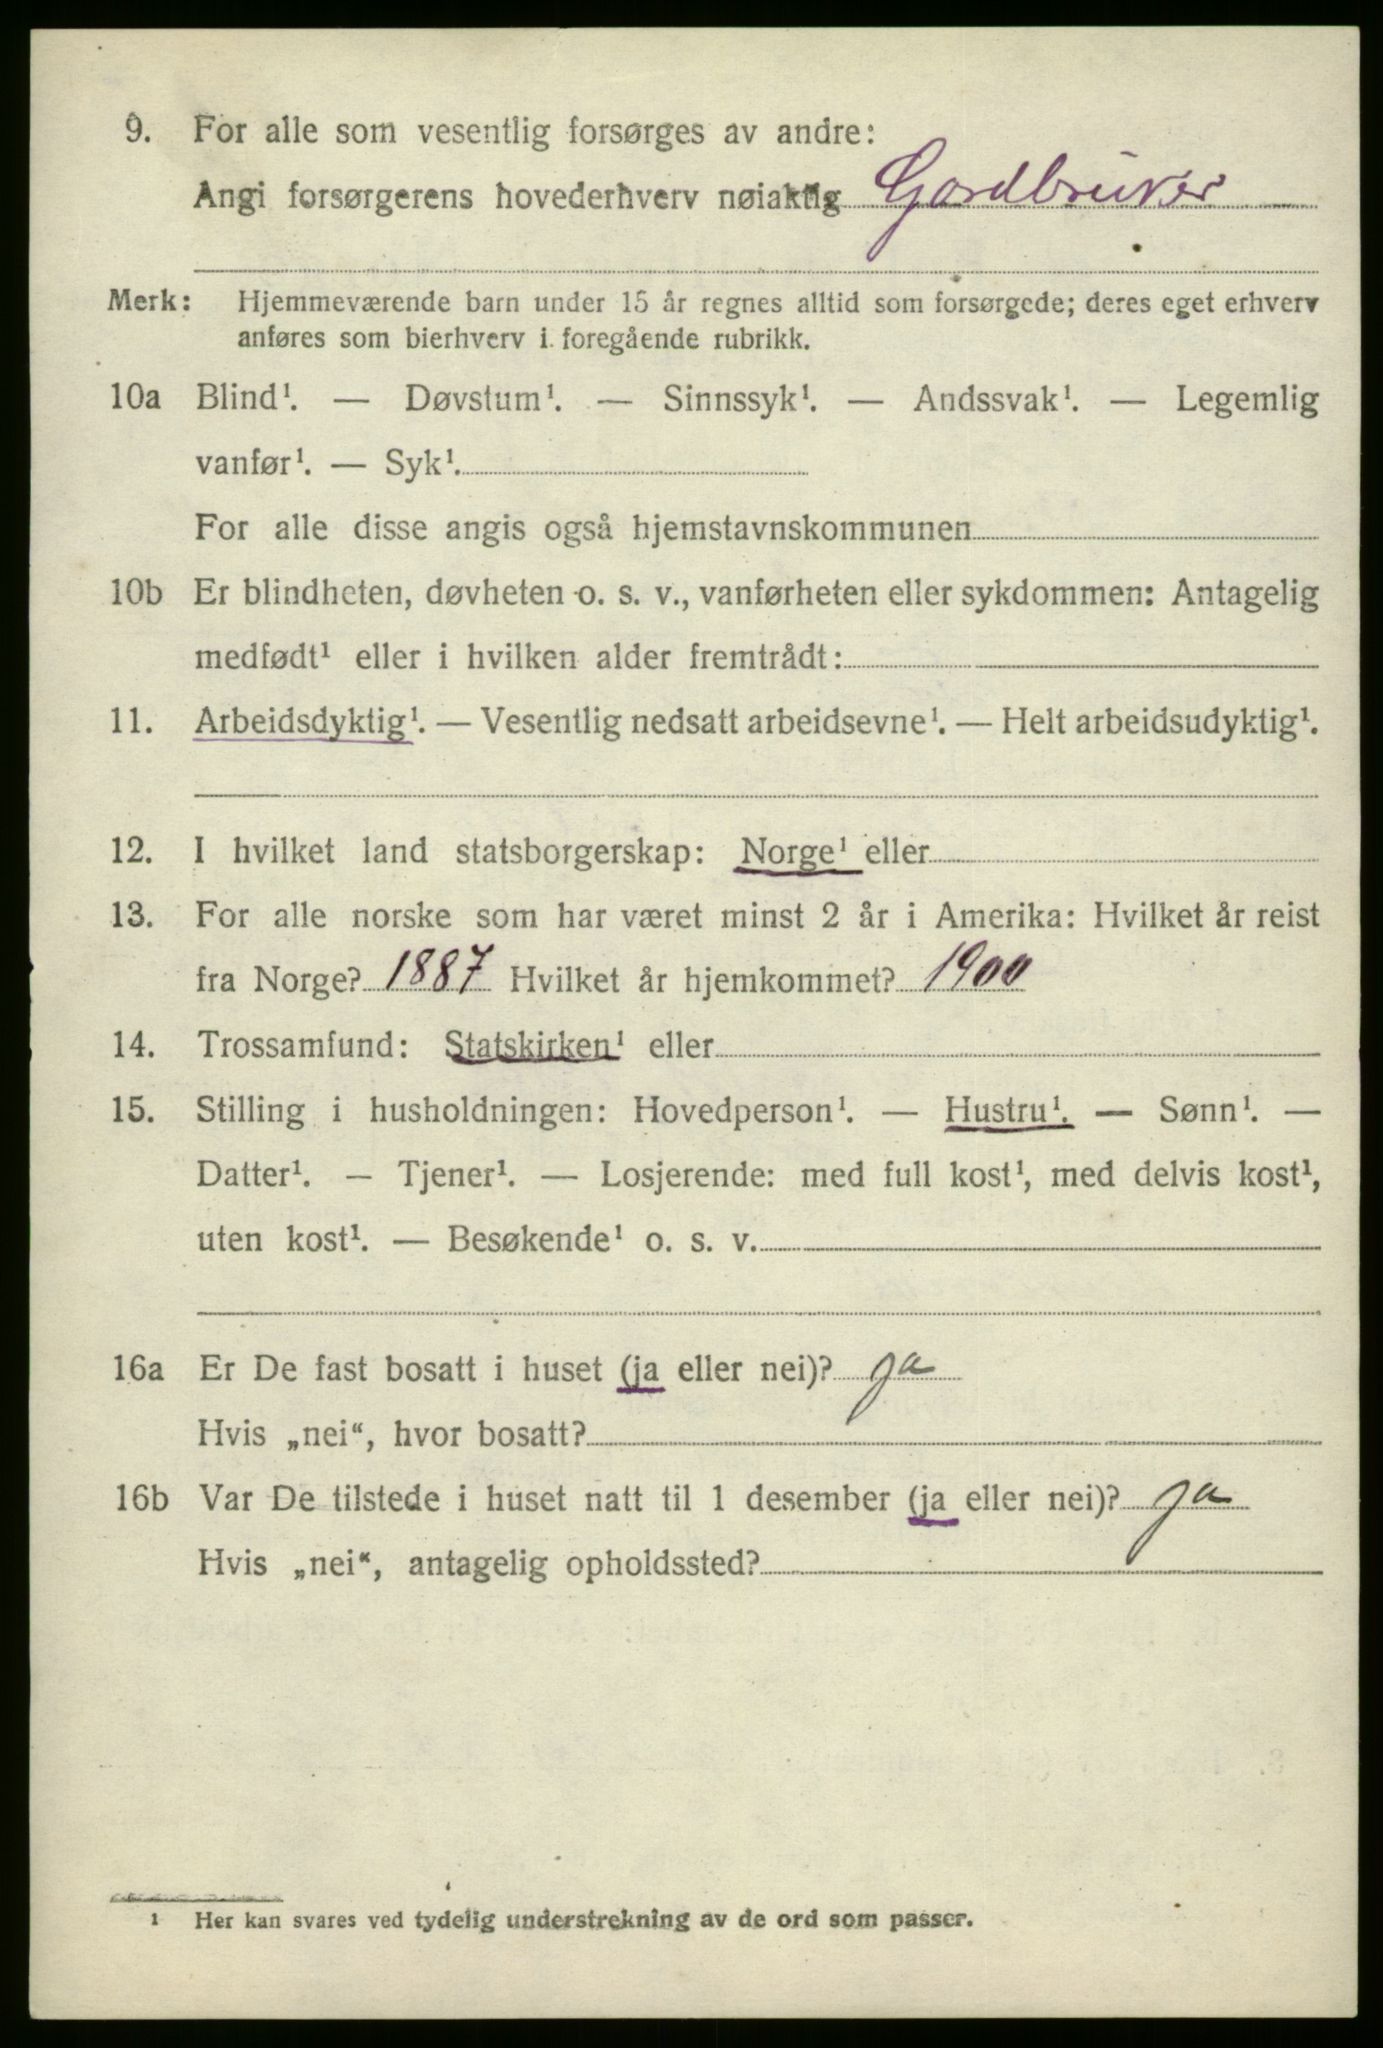 9. For alle som vesentlig forsørges av andre:
Angi forsørgerens hovederhverv nøiaktig Gardbruker
Merk: Hjemmeværende barn under 15 år regnes alltid som forsørgede; deres eget erhverv
anføres som bierhverv i foregående rubrikk.
10a Blind¹. — Døvstum¹. — Sinnssyk¹. — Andssvak¹. — Legemlig
vanfør¹. — Syk¹.
For alle disse angis også hjemstavnskommunen
10b Er blindheten, døvheten o. s. v., vanførheten eller sykdommen: Antagelig
medfødt¹ eller i hvilken alder fremtrådt:
11. Arbeidsdyktig¹. — Vesentlig nedsatt arbeidsevne¹. — Helt arbeidsudyktig¹.
12. I hvilket land statsborgerskap: Norge¹ eller
13. For alle norske som har været minst 2 år i Amerika: Hvilket år reist
fra Norge? 1887 Hvilket år hjemkommet? 1900
14. Trossamfund: Statskirken¹ eller
15. Stilling i husholdningen: Hovedperson¹. — Hustru¹. — Sønn¹. —
Datter¹. — Tjener¹. — Losjerende: med full kost¹, med delvis kost¹,
uten kost¹. — Besøkende¹ o. s. v.
16a Er De fast bosatt i huset (ja eller nei)? ja
Hvis „nei“, hvor bosatt?
16b Var De tilstede i huset natt til 1 desember (ja eller nei)? ja
Hvis „nei“, antagelig opholdssted?
¹ Her kan svares ved tydelig understrekning av de ord som passer.